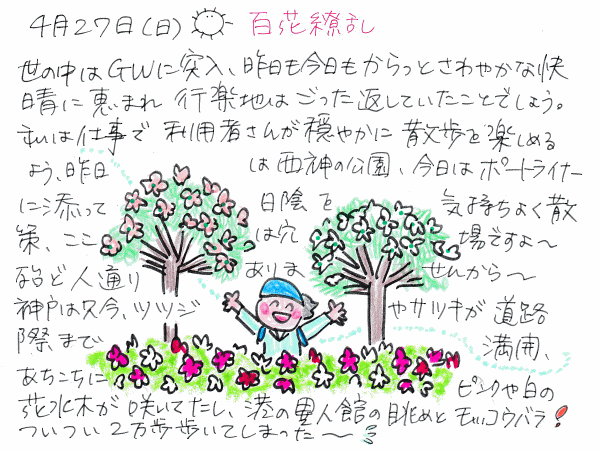 4月27日(日) 百花繚乱
世の中はGWに突入、昨日も今日もからっとさわやかな快
晴に恵まれ 行楽地はごった返していたことでしょう。
私は仕事で 利用者さんが穏やかに 散歩を楽しめる
よう、昨日は西神の公園、今日はポートライナー
に添って 日陰を 気持ちよく散
策、ここは穴場ですよ〜
殆ど人通りありませんから〜
神戸は只今、ツツジやサツキが 道路
際まで 満開、
あちこちに ピンクや白の
花水木が 咲いてたし、港の異人館の眺めと モッコウバラ!
ついつい 2万歩歩いてしまった〜